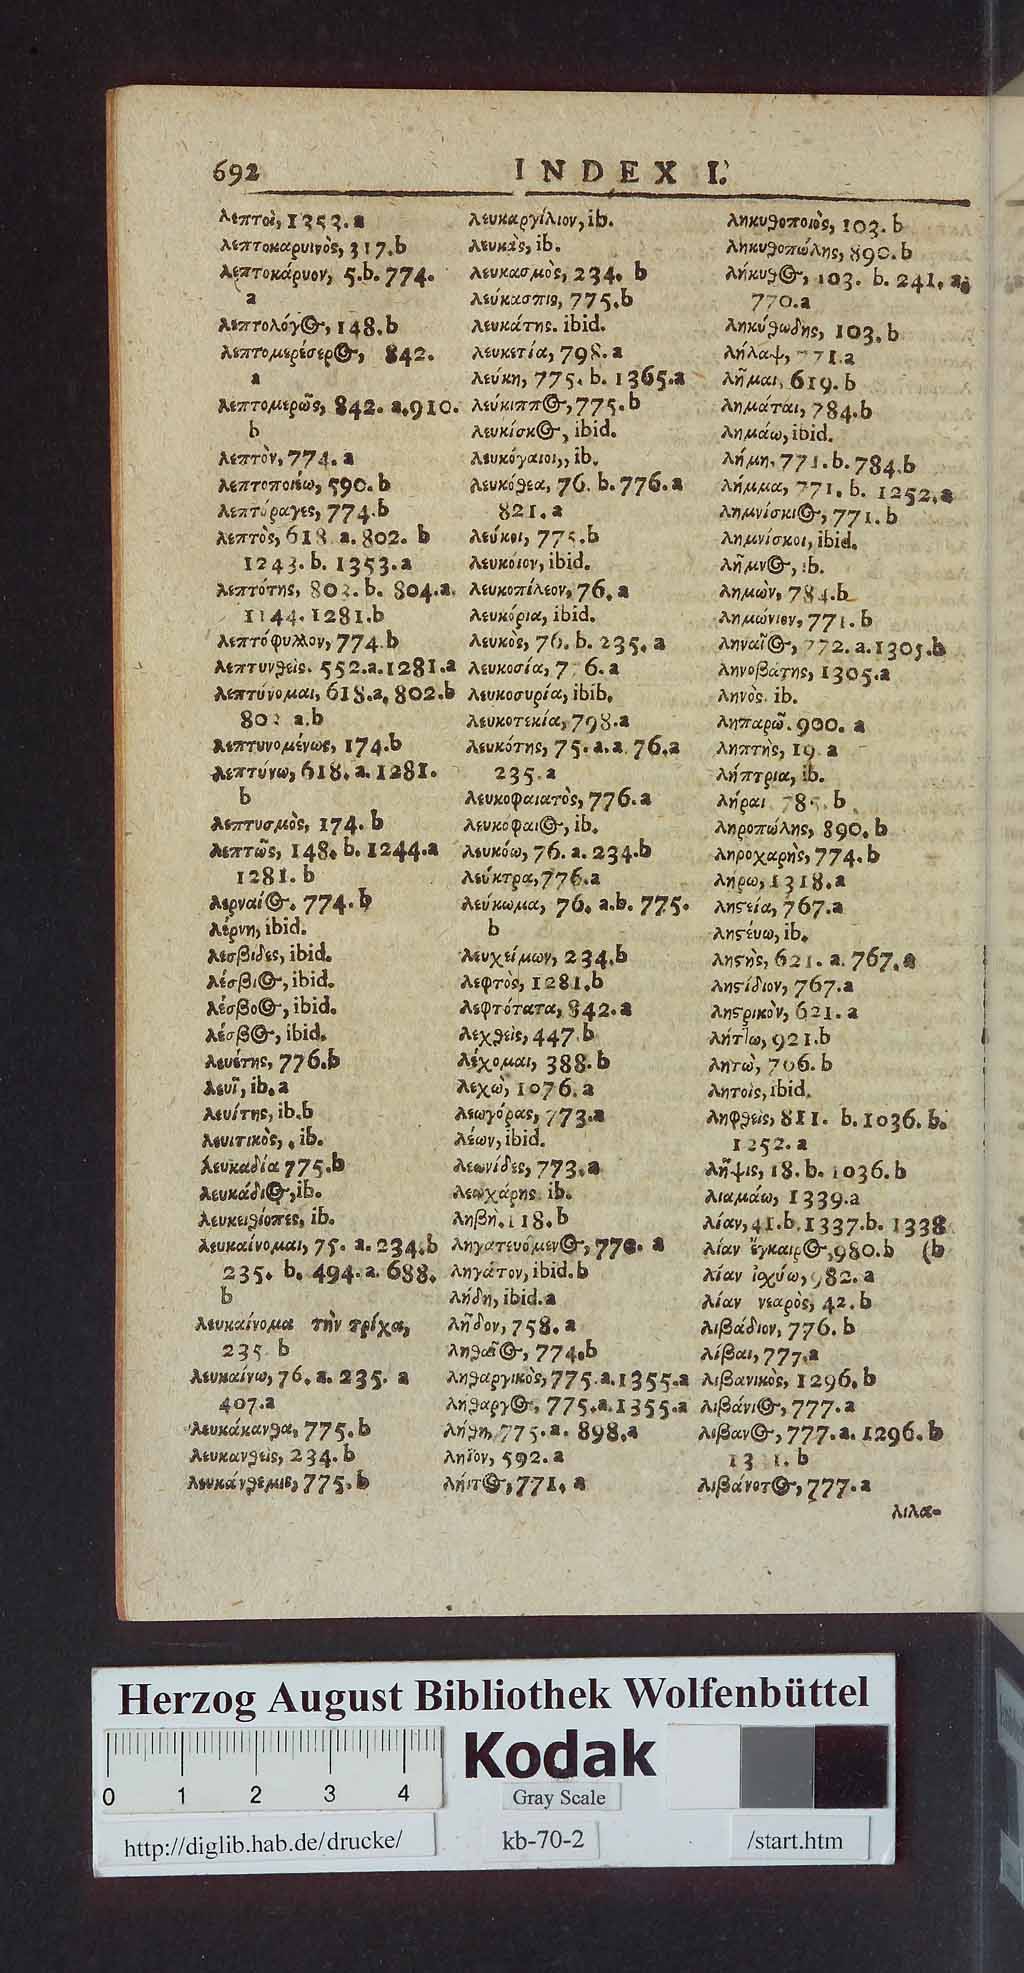 692 INDEX I.
λεπτοὶ, 1353.a
λεπτοκαρυινὸς, 317.b
λεπτοκάρυον, 5.b. 774.
a
λεπτολόγος, 148.b
λεπτομερέσερος, 842.
a
λεπτομερῶς, 842. a.910.
b
λεπτὸν, 774. a
λεπτοποιέω, 590. b
λεπτόραγες, 774.b
λεπτὸς, 618. a. 802. b
1243. b. 1353.a
λεπτότης, 803. b. 804.a.
1144. 1281.b
λεπτόφυλλον, 774.b
λεπτυνθεὶς. 552.a.1281.a
λεπτύνομαι, 618.a, 802.b
803 a.b
λεπτυνομένως, 174.b
λεπτύνω, 618. a. 1281.
b
λεπτυσμὸς, 174. b
λεπτῶς, 148. b. 1244.a
1281. b
λερναίος. 774. b
λέρνη, ibid.
λεσβιδες, ibid.
λέσβιος, ibid.
λέσβοος, ibid.
λέσβος, ibid.
λευέτης, 776.b
λευῒ, ib.a
λευίτης, ib.b
λευιτικὸς, . ib.
λευκαδία 775.b
λευκάδιος, ib.
λευκαιθίοπες, ib.
λευκαίνομαι, 75. a. 234.b
235. b. 494. a. 688.
b
λευκαίνομα τὴν τρίχα,
235. b
λευκαίνω, 76. a. 235. a
407.a
λευκάκανθα, 775. b
λευκανθεὶς, 234. b
λευκάνθεμις, 775. b
λευκαργίλιον, ib.
λευκὰς, ib.
λευκασμὸς, 234. b
λεύκασπις, 775.b
λευκάτης. ibid.
λευκετία, 798. a
λεύκη, 775. b. 1365.a
λεύκιππος, 775. b
λευκίσκος, ibid.
λευκόγαιοι,, ib.
λευκόθεα, 76. b. 776. a
821. a
λεύκοι, 775.b
λευκόιον, ibid.
λευκοπίλεον, 76. a
λευκόρια, ibid.
λευκὸς, 76. b. 235. a
λευκοσία, 776. a
λευκοσυρία, ibib.
λευκοτεκία, 798.a
λευκότης, 75. a.a. 76.a
235. a
λευκοφαιατὸς, 776. a
λευκοφαιος, ib.
λευκόω, 76. a. 234.b
λεύκτρα, 776.a
λεύκωμα, 76. a.b. 775.
b
λευχείμων, 234.b
λεφτὸς, 1281.b
λεφτότατα, 842. a
λεχθεὶς, 447. b
λέχομαι, 388. b
λεχὼ, 1076. a
λεωγόρας, 773.a
λέων, ibid.
λεωνίδες, 773. a
λεωχάρης. ib.
ληβη. 118. b
ληγατευόμενος, 770. a
ληγάτον, ibid. b
λήδη, ibid.a
λῆδον, 758. a
ληθαῖος, 774.b
ληθαργικὸς, 775. a.1355.a
ληθαργος, 775.a.1355.a
λήθη, 775. a. 898.a
λήϊον, 592. a
λήιτος, 771. a
ληκυθοποιὸς, 103. b
ληκυθοπώλης, 890. b
λήκυθος, 103. b. 241. a.
770.a
ληκύθωδης, 103. b
λήλαψ, 771.a
λῆμαι, 619. b
λημάται, 784.b
λημάω, ibid.
λήμη. 771. b. 784.b
λήμμα, 771. b. 1252.a
λημνίσκιος, 771. b
λημνίσκοι, ibid.
λῆμνος, ib.
λημὼν, 784.b
λημώνιον, 771. b
ληναῖος, 772. a.1305.b
ληνοβάτης, 1305.a
ληνὸς. ib.
ληπαρῶ. 900. a
ληπτὴς, 19. a
λήπτρια, ib.
λήραι 785. b
ληροπώλης, 890. b
ληροχαρὴς, 774. b
λήρω, 1318. a
ληϛεία, 767.a
ληϛέυω, ib.
ληϛὴς, 621. a. 767. a
ληϛίδιον, 767.a
ληϛρικὸν, 621. a
λήττω, 921.b
λητὼ, 706. b
λητοῖς, ibid.
ληφθεὶς, 811. b. 1036. b.
1252. a
λῆψις, 18. b. 1036. b
λιαμάω, 1339.a
λίαν, 41. b. 1337.b. 1338
λίαν ἔγκαιρος, 980. b (b
λίαν ἰσχύω, 982. a
λίαν νεαρὸς, 42. b
λιβάδιον, 776. b
λίβαι, 777.a
λιβανικὸς, 1296. b
λιβάνιος, 777. a
λιβανος, 777. a. 1296. b
λιβάνοτος, 777. a
λιλα-
Herzog August Bibliothek Wolfenbüttel
Kodak
Gray Scale
0 1 2 3 4
http://diglib.hab.de/drucke/ kb-70-2 /start.htm